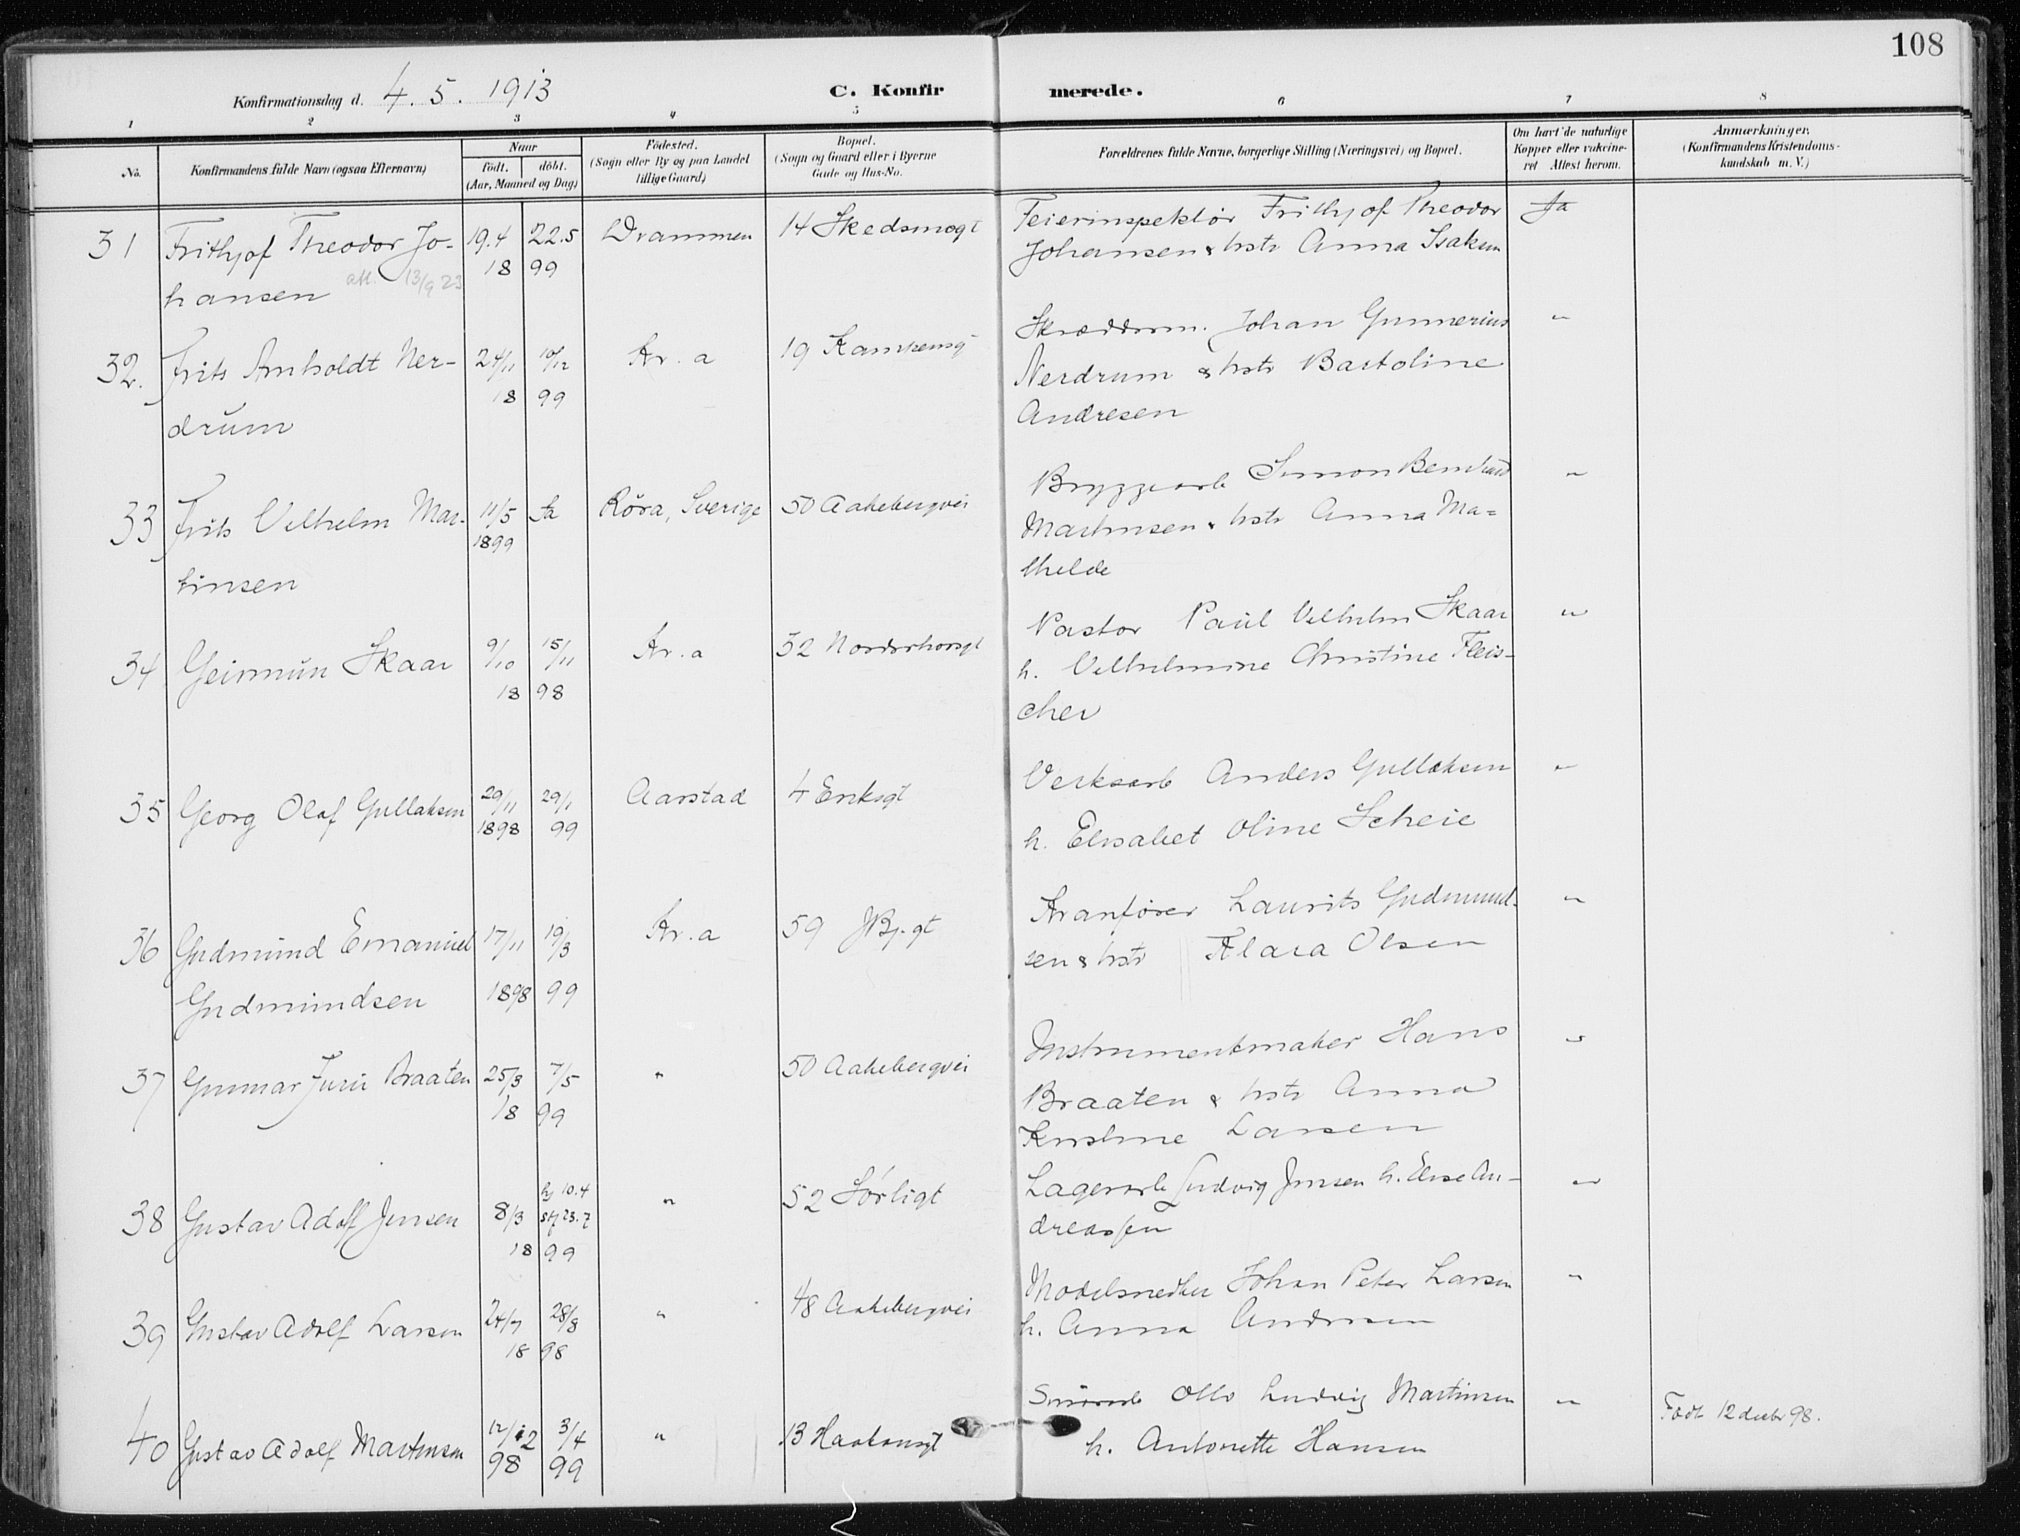 108
Konfirmationsdag d. 4. 5. 1913
C. Konfirmerede.
1 2 3 4 5 6 7 8
No. Konfirmandens fulde Navn (ogsaa Efternavn) Naar født. døbt. (Aar, Maaned og Dag) Fødested. (Sogn eller By og paa Landet tillige Gaard) Bopæl. (Sogn og Gaard eller i Byerne Gade og Hus-No. Forældrenes fulde Navne, borgerlige Stilling (Næringsvei) og Bopæl. Om havt de naturlige Kopper eller vakcineret Attest herom. Anmærkninger. (Konfirmandens Kristendomskundskab m. V.)
31 Frithjof Theodor Jo- 19.4 22.5 Drammen 14 Skedsmogt Feierinspektør Frithjof Theodor Ja
hansen att. 13/9 23 18 99 Johansen & hstr Anna Isaksen
32. Frits Arnholdt Ner- 24/11 10/12 Kr.a 19 Kampensg Skræddrm. Johan Gunnerius "
drum 18 99 Nerdrum & hstr Bartoline
Andresen
33 Frits Vilhelm Mar- 11/5 Ja Röra, Sverige 50 Aakebergvei Bryggearb Simon Bernhard "
tinsen 1899 Martinsen & hstr Anna Ma-
thilde
34 Geirmun Skaar 9/10 15/11 Kr.a 32 Nordrhovgt Pastor Paul Vilhelm Skaar "
18 98 h. Vilhelmine Christine Fleis-
cher
35 Georg Olaf Gullaksen 29/11 29/1 Aarstad 4 Eriksgt Verksarb Anders Gullaksen "
1898 99 h. Elisabet Oline Scheie
36 Gudmund Emanuel 17/11 19/3 Kr.a 59 JBj.gt Kranfører Laurits Gudmund- "
Gudmundsen 1898 99 sen & hstr Klara Olsen
37 Gunnar Juri Braaten 25/3 7/5 " 50 Aakebergvei Instrumentmaker Hans "
18 99 Braaten & hstr Anna
Kristine Larsen
38 Gustav Adolf Jensen 8/3 hj 10.4 stf 23.7 " 52 Sørligt Lagerarb Ludvig Jensen h. Elise An- "
18 99 dreassen
39 Gustav Adolf Larsen 24/7 28/8 " 48 Aakebergvei Modelsnedker Johan Peter Larsen "
18 98 h. Anna Andresen
40 Gustav Adolf Martinsen 12/12 3/4 " 13 Haakonsgt Otto Ludvig Martinsen " Født 12 decbr 98.
98 99 h. Antonette Hansen